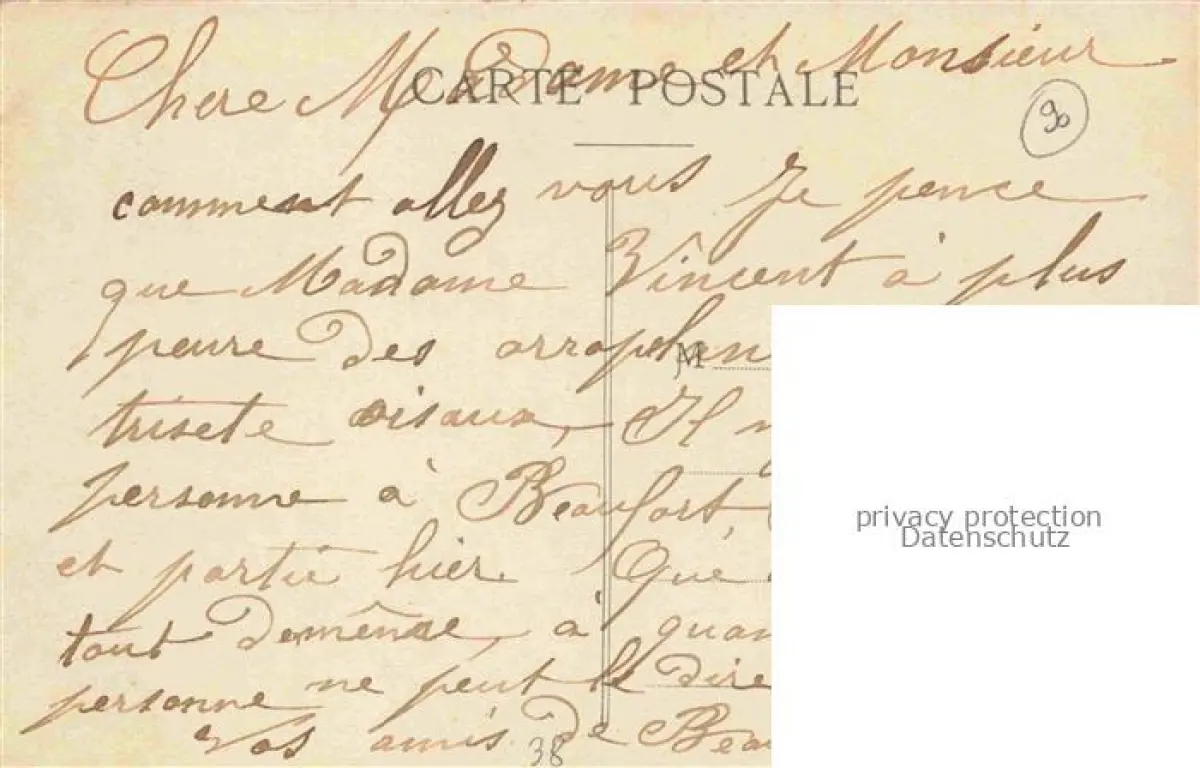 Chere Madame et Monsieur
CARTE POSTALE
90
comment allez vous Je pence
que Madame Vincent à plus
peure des
M
trisete oisaux, Il
personne à Beaufort,
et partie hier Que
tout demênse, à
personne ne peut le dire
Vos amis de
38
privacy protection
Datenschutz